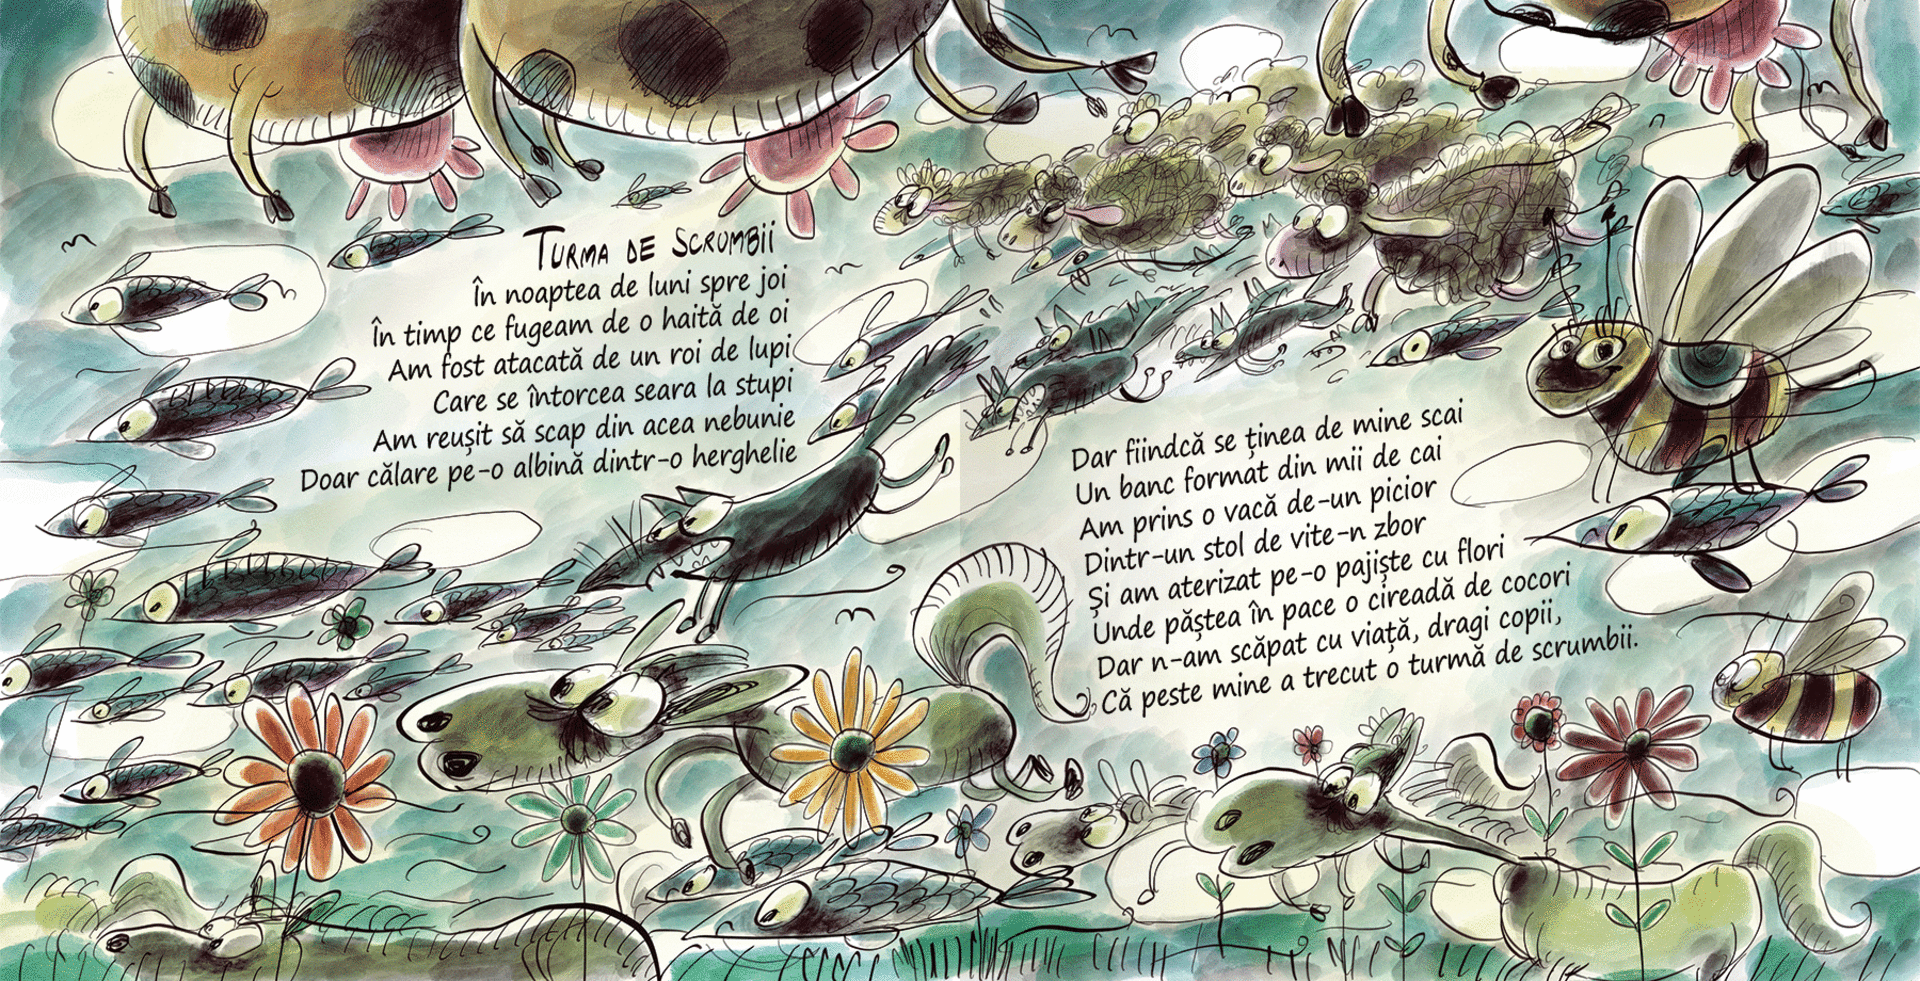 TURMA DE SCRUMBII
În noaptea de luni spre joi
În timp ce fugeam de o haită de oi
Am fost atacată de un roi de lupi
Care se întorcea seara la stupi
Am reușit să scap din acea nebunie
Doar călare pe-o albină dintr-o herghelie
Dar fiindcă se ținea de mine scai
Un banc format din mii de cai
Am prins o vacă de-un picior
Dintr-un stol de vite-n zbor
Și am aterizat pe-o pajiște cu flori
Unde păștea în pace o cireadă de cocori
Dar n-am scăpat cu viață, dragi copii,
Că peste mine a trecut o turmă de scrumbii.